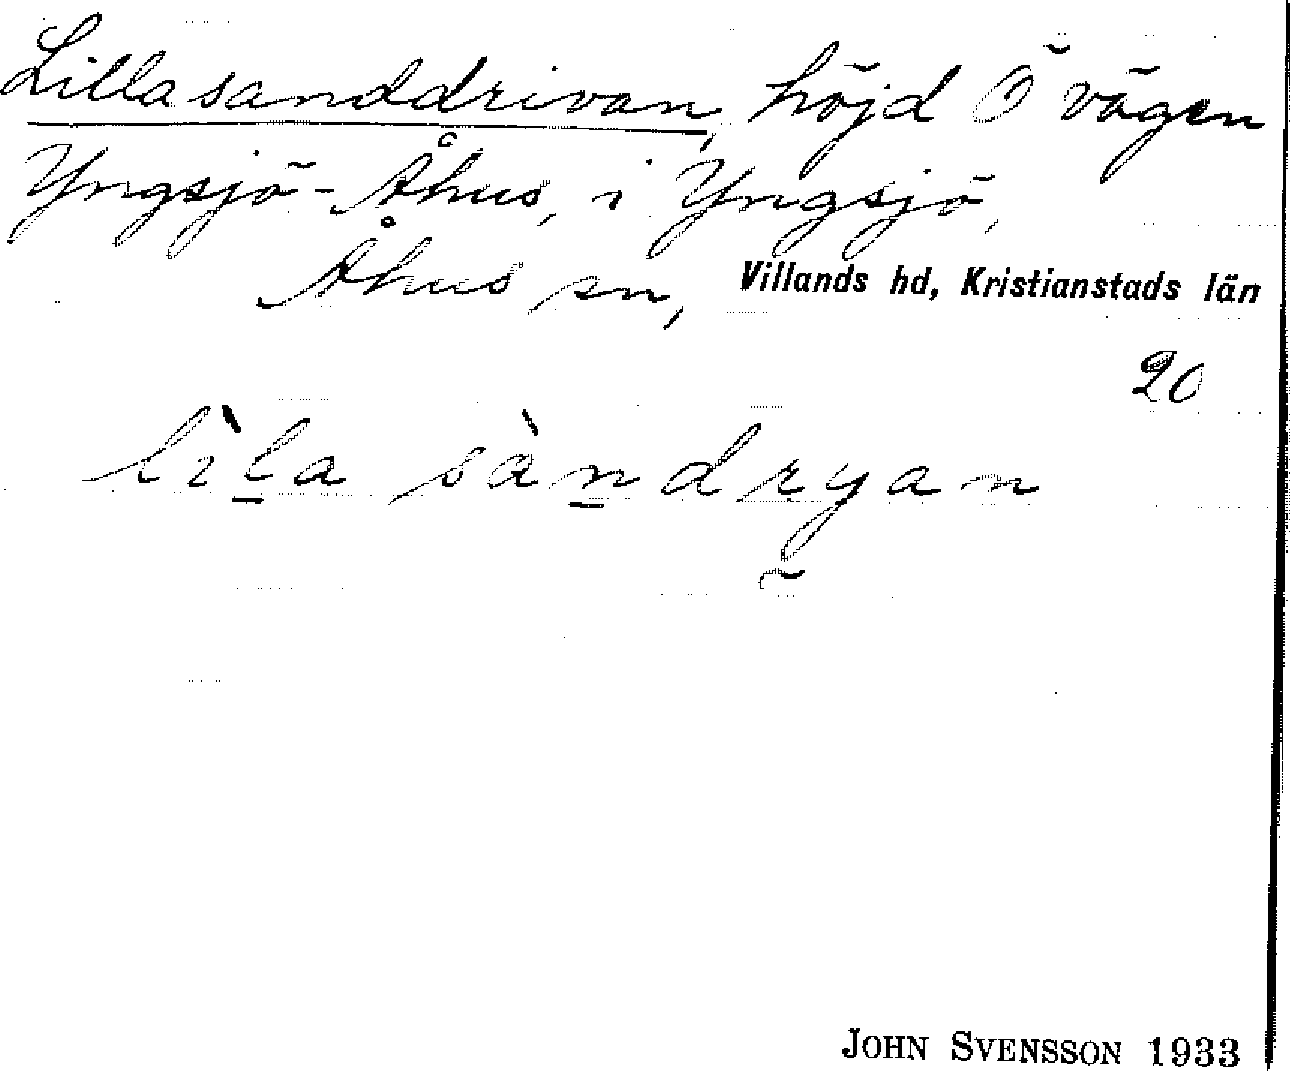 Lilla sanddrivan, höjd Ö vägen
Yngsjö-Åhus, i Yngsjö,
Åhus sn, Villands hd, Kristianstads län
20
lìla sàndryan
JOHN SVENSSON 1933